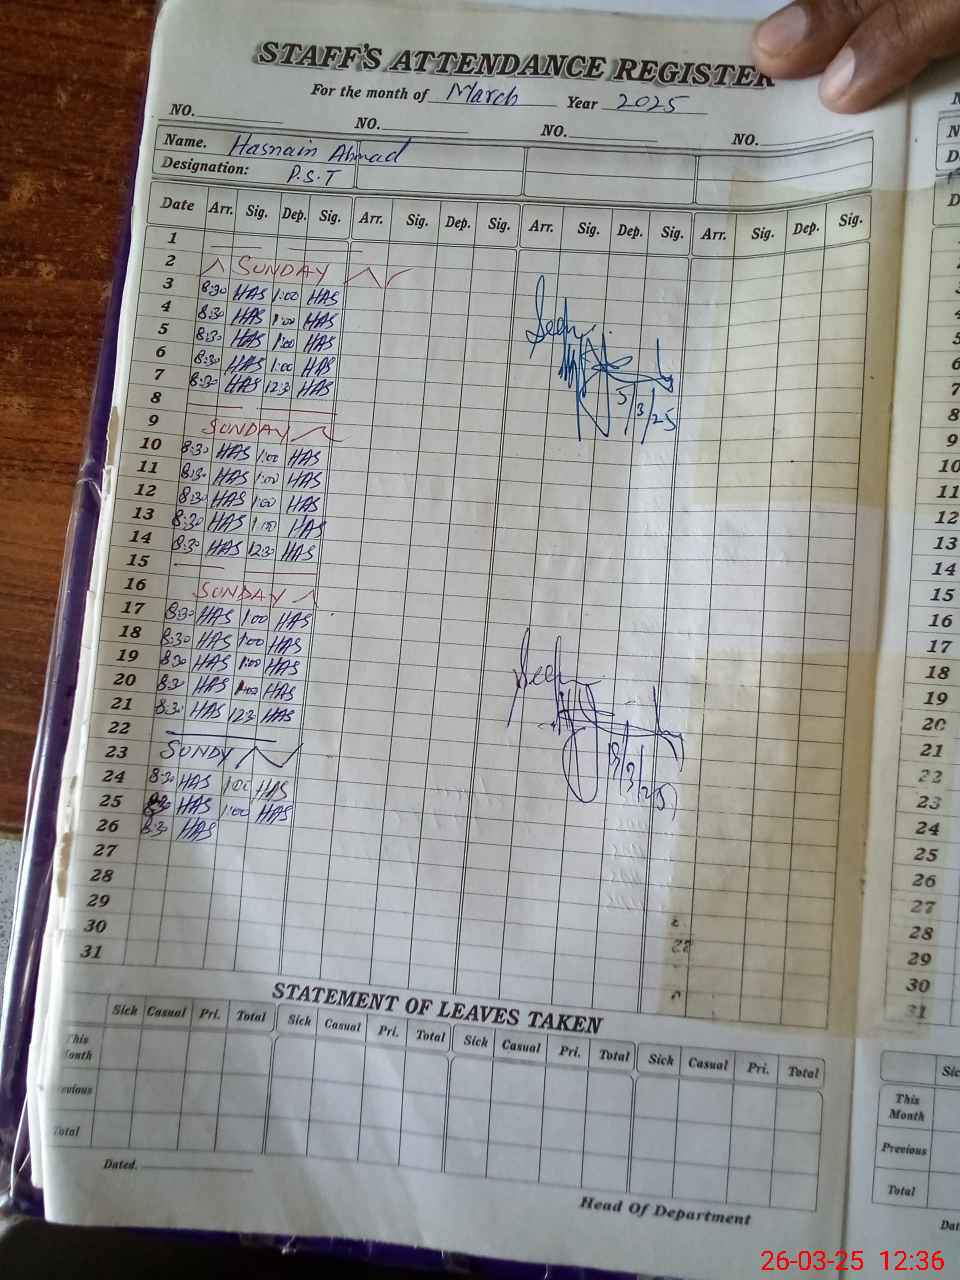 STAFF'S ATTENDANCE REGISTER
For the month of March Year 2025
NO. NO. NO. NO.
Name. Hasnain Ahmad
Designation: P.S.T
Date Arr. Sig. Dep. Sig. Arr. Sig. Dep. Sig. Arr. Sig. Dep. Sig. Arr. Sig. Dep. Sig.
1
2 SUNDAY
3 8:30 HAS 1:00 HAS
4 8:30 HAS 1:00 HAS
5 8:30 HAS 1:00 HAS
6 8:30 HAS 1:00 HAS
7 8:30 HAS 12:3 HAS
8
9 SUNDAY
10 8:30 HAS 1:00 HAS
11 8:30 HAS 1:00 HAS
12 8:30 HAS 1:00 HAS
13 8:30 HAS 1:00 HAS
14 8:30 HAS 12:30 HAS
15
16 SUNDAY
17 8:30 HAS 1:00 HAS
18 8:30 HAS 1:00 HAS
19 8:30 HAS 1:00 HAS
20 8:30 HAS 1:00 HAS
21 8:30 HAS 12:3 HAS
22
23 SUNDY
24 8:30 HAS 1:00 HAS
25 8:30 HAS 1:00 HAS
26 8:30 HAS
27
28
29
30
31
Seen
5/3/25
Seen
19/3/25
STATEMENT OF LEAVES TAKEN
Sick Casual Pri. Total Sick Casual Pri. Total Sick Casual Pri. Total Sick Casual Pri. Total
This Month
Previous
Total
Dated.
Head Of Department
5
6
7
8
9
10
11
12
13
14
15
16
17
18
19
20
21
22
23
24
25
26
27
28
29
30
31
This Month
Previous
Total
26-03-25 12:36